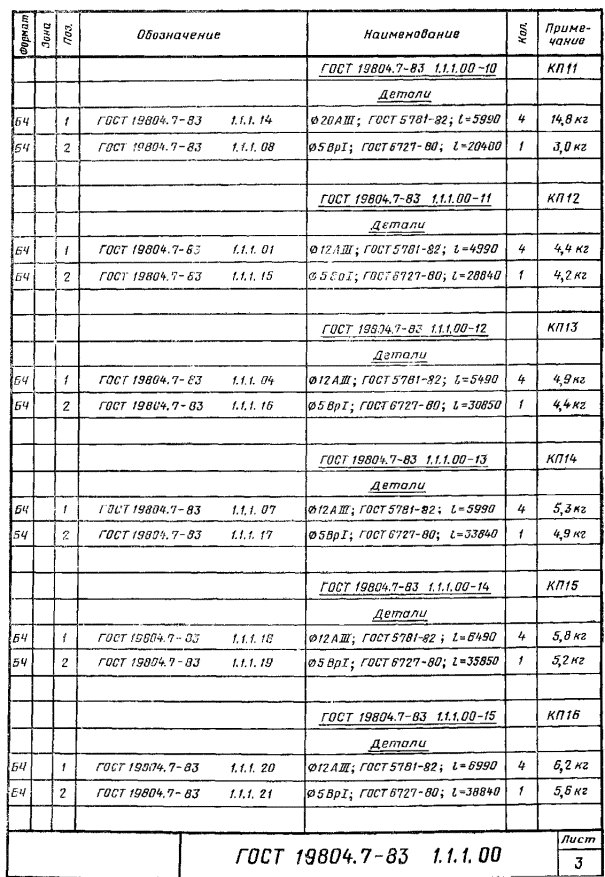 Формат Зона Поз. Обозначение Наименование Кол. Примечание
ГОСТ 19804.7-83 1.1.1.00-10 КП11
Детали
БЧ 1 ГОСТ 19804.7-83 1.1.1.14 Ø20АⅢ; ГОСТ 5781-82; l=5990 4 14,8 кг
БЧ 2 ГОСТ 19804.7-83 1.1.1.08 Ø5ВрI; ГОСТ 6727-80; l=20400 1 3,0 кг
ГОСТ 19804.7-83 1.1.1.00-11 КП12
Детали
БЧ 1 ГОСТ 19804.7-83 1.1.1.01 Ø12АⅢ; ГОСТ 5781-82; l=4990 4 4,4 кг
БЧ 2 ГОСТ 19804.7-83 1.1.1.15 Ø5ВрI; ГОСТ 6727-80; l=28840 1 4,2 кг
ГОСТ 19804.7-83 1.1.1.00-12 КП13
Детали
БЧ 1 ГОСТ 19804.7-83 1.1.1.04 Ø12АⅢ; ГОСТ 5781-82; l=5490 4 4,9 кг
БЧ 2 ГОСТ 19804.7-83 1.1.1.16 Ø5ВрI; ГОСТ 6727-80; l=30850 1 4,4 кг
ГОСТ 19804.7-83 1.1.1.00-13 КП14
Детали
БЧ 1 ГОСТ 19804.7-83 1.1.1.07 Ø12АⅢ; ГОСТ 5781-82; l=5990 4 5,3 кг
БЧ 2 ГОСТ 19804.7-83 1.1.1.17 Ø5ВрI; ГОСТ 6727-80; l=33840 1 4,9 кг
ГОСТ 19804.7-83 1.1.1.00-14 КП15
Детали
БЧ 1 ГОСТ 19804.7-83 1.1.1.18 Ø12АⅢ; ГОСТ 5781-82; l=6490 4 5,8 кг
БЧ 2 ГОСТ 19804.7-83 1.1.1.19 Ø5ВрI; ГОСТ 6727-80; l=35850 1 5,2 кг
ГОСТ 19804.7-83 1.1.1.00-15 КП16
Детали
БЧ 1 ГОСТ 19804.7-83 1.1.1.20 Ø12АⅢ; ГОСТ 5781-82; l=6990 4 6,2 кг
БЧ 2 ГОСТ 19804.7-83 1.1.1.21 Ø5ВрI; ГОСТ 6727-80; l=38840 1 5,6 кг
ГОСТ 19804.7-83 1.1.1.00 Лист
3